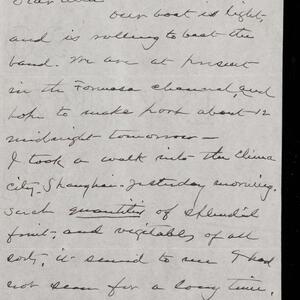 our boat is light,
and is rolling to beat the
band. We are at present
in the Formosa channel, and
hope to make port about 12
midnight tomorrow —
I took a walk into the China
city - Shanghai - yesterday morning.
Such quantities of splendid
fruit, and vegetables of all
sorts, it seemed to me I had
not seen for a long time,